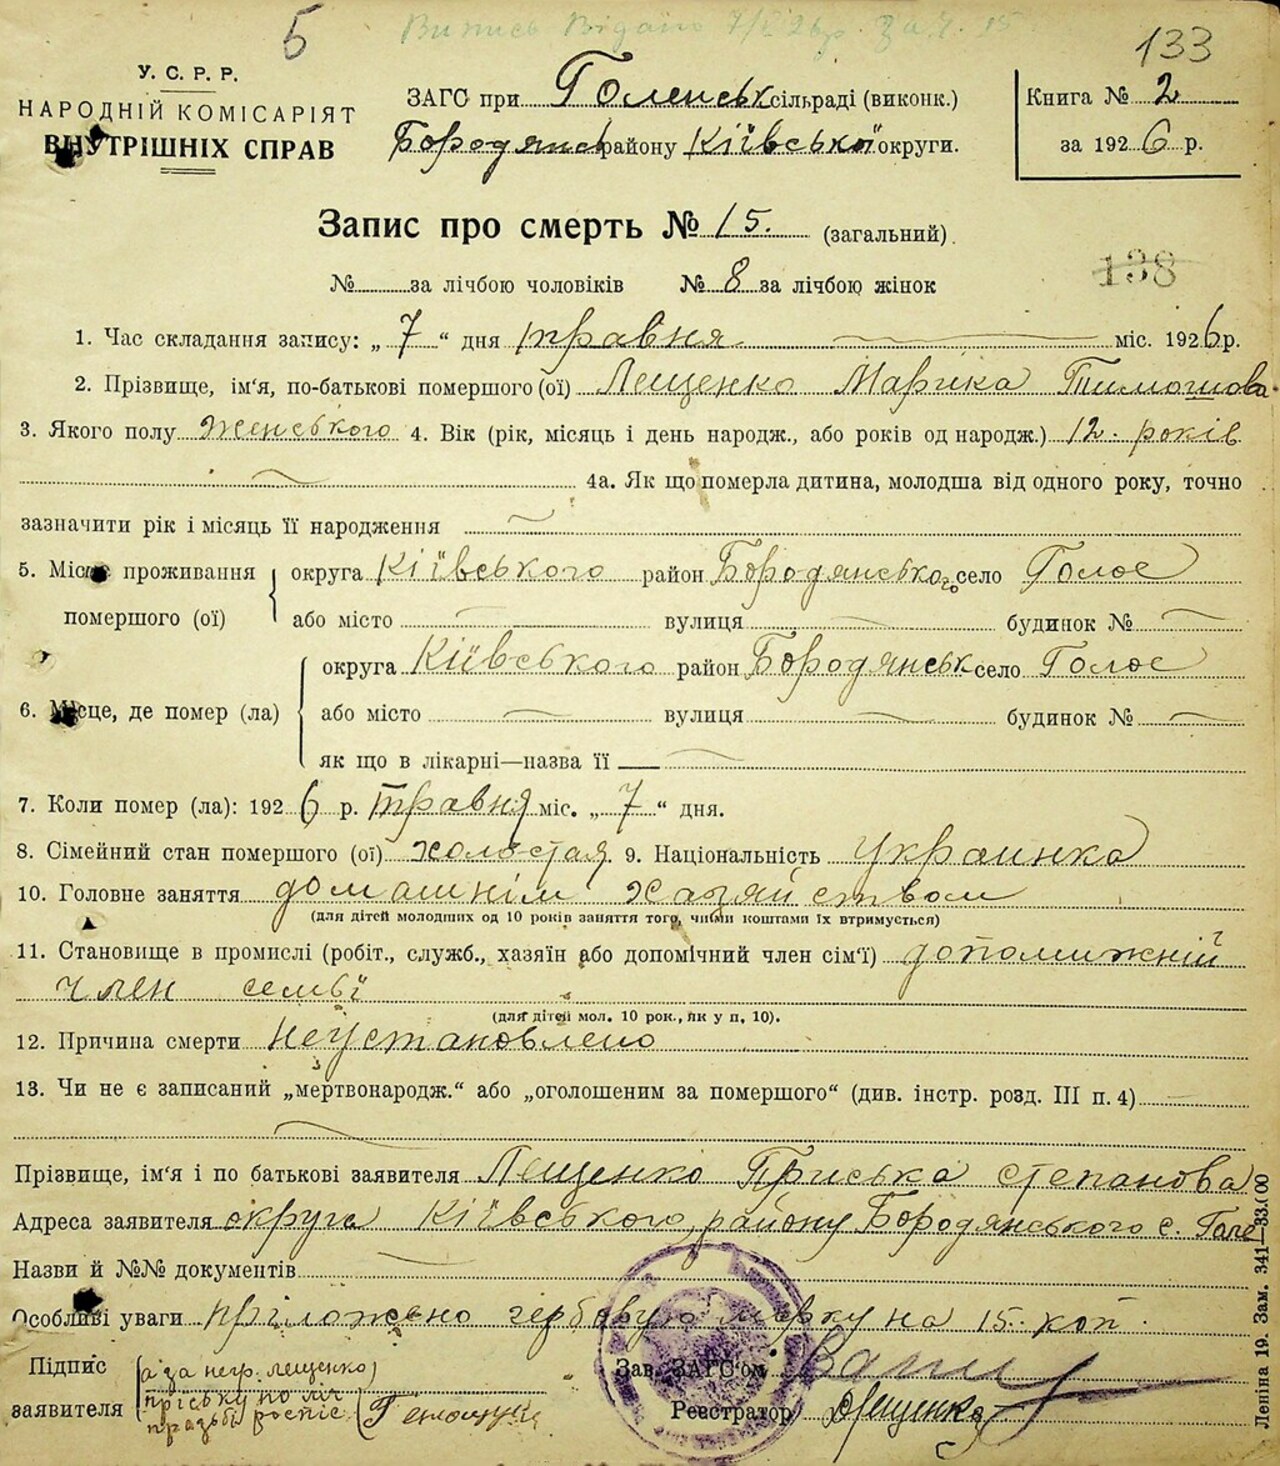 5
Випись Видано 7/V 26р. За ч. 15
133
У. С. Р. Р.
НАРОДНІЙ КОМІСАРІЯТ
ВНУТРІШНІХ СПРАВ
ЗАГС при Голенськ сільраді (виконк.)
Бородянськ району Київської округи.
Книга № 2
за 1926 р.
Запис про смерть № 15. (загальний).
138
№ за лічбою чоловіків № 8 за лічбою жінок
1. Час складання запису: „ 7 “ дня травня міс. 1926 р.
2. Прізвище, ім'я, по-батькові помершого (ої) Лещенко Марика Тимошова
3. Якого полу Женського 4. Вік (рік, місяць і день народж., або років од народж.) 12. років
4а. Як що померла дитина, молодша від одного року, точно
зазначити рік і місяць її народження
5. Місце проживання помершого (ої)
округа Київського район Бородянського село Голое
або місто вулиця будинок №
6. Місце, де помер (ла)
округа Київського район Бородянськ село Голое
або місто вулиця будинок №
як що в лікарні—назва її
7. Коли помер (ла): 1926 р. травня міс. „ 7 “ дня.
8. Сімейний стан помершого (ої) холостая. 9. Національність Украинка
10. Головне заняття домашнім хазяйством
(для дітей молодших од 10 років заняття того, чиїми коштами їх втримується)
11. Становище в промислі (робіт., служб., хазяїн або допомічний член сім'ї) допомижній
член семьї
(для дітей мол. 10 рок., як у п. 10).
12. Причина смерти Неустановлено
13. Чи не є записаний „мертвонародж.“ або „оголошеним за помершого“ (див. інстр. розд. III п. 4)
Прізвище, ім'я і по батькові заявителя Лещенко Приська степанова
Адреса заявителя округа Київського, району Бородянського с. Голе
Назви й №№ документів
Особливі уваги приложено гербовую марку на 15. коп.
Підпис заявителя
а за негр. Лещенко
Приську по її
прозьбі роспис
Зав. ЗАГС'ом
Реєстратор Лещенко
Леніна 19. Зам. 341—33.000